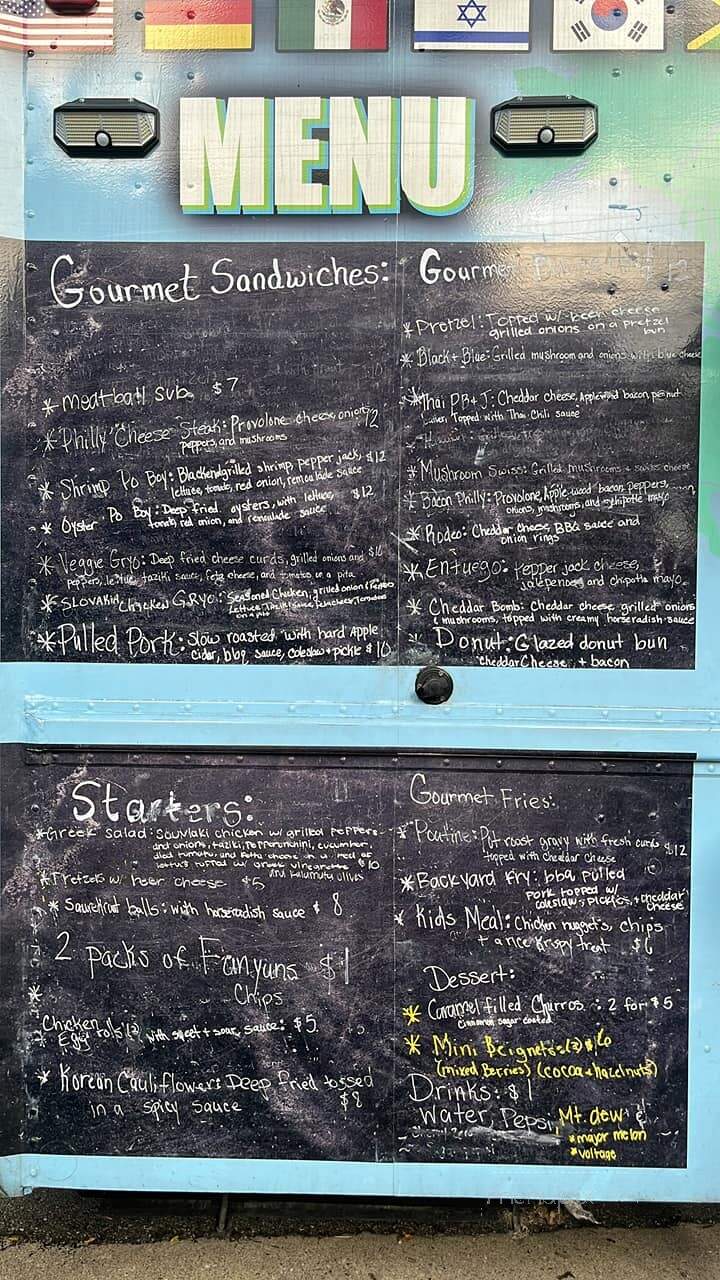 MENU
Gourmet Sandwiches:
* Meatball Sub $7
* Philly Cheese Steak: Provolone cheese, onions, 12
peppers, and mushrooms
* Shrimp Po Boy: Blackend grilled shrimp, pepper jack, $12
lettuce, tomato, red onion, remoulade sauce
* Oyster Po Boy: Deep fried oysters, with lettuce, $12
tomato, red onion, and remoulade sauce
* Veggie Gryo: Deep fried cheese curds, grilled onions and $10
peppers, lettuce, taziki sauce, feta cheese, and tomatoes on a pita
* SLOVAKIA Chicken GRYO: Seasoned Chicken, grilled onion & Peppers
on a pita
* Pulled Pork: Slow roasted with hard Apple
cider, bbq sauce, coleslaw + pickle $10
Gourmet 12
* Pretzel: Topped w/ beer cheese
grilled onions on a pretzel
bun
* Black + Blue: Grilled mushroom and onions with blue cheese
* Thai PB + J: Cheddar cheese, Applewood bacon, peanut
butter, topped with Thai Chili sauce
* Mushroom Swiss: Grilled mushrooms + swiss cheese
* Bacon Philly: Provolone, Apple wood bacon, peppers,
onions, mushrooms, and chipotle mayo
* Rodeo: Cheddar cheese, BBQ sauce and
onion rings
* Enfuego: pepper jack cheese,
jalepenoes and chipotle mayo.
* Cheddar Bomb: Cheddar cheese grilled onions
& mushrooms, topped with creamy horseradish sauce
Donut: Glazed donut bun
cheddar Cheese, + bacon
Starters:
* Greek Salad: Souvlaki chicken w/ grilled Peppers
and onions, taziki, Pepperunchini, cucumber,
died tomatu, and fetta cheese in a bed of
lettus topped w/ greek vinegarette $10
and Kalumutu olives
* Pretzels w/ beer cheese $5
* Saurekraut balls: with horseradish sauce $ 8
2 packs of Fanyuns $1
Chips
*
Chicken
Egg rolls (2) with sweet + sour sauce: $5
* Korean Cauliflower: Deep fried tossed
in a spicy sauce $8
Gourmet Fries:
* Poutine: Pot roast gravy with fresh curds $12
topped with cheddar cheese
* Backyard Fry: bbq pulled
pork topped w/
coleslaw, pickles, + cheddar
cheese
* Kids Meal: Chicken nuggets, chips
+ a rice krispy treat $6
Dessert:
* Caramel filled Churros: 2 for $5
cinnamon sugar coated
* Mini Beignets: (3) $6
(mixed Berries) (cocoa + hazelnuts)
Drinks: $1
Water, Pepsi, Mt. dew
* major melon
* voltage